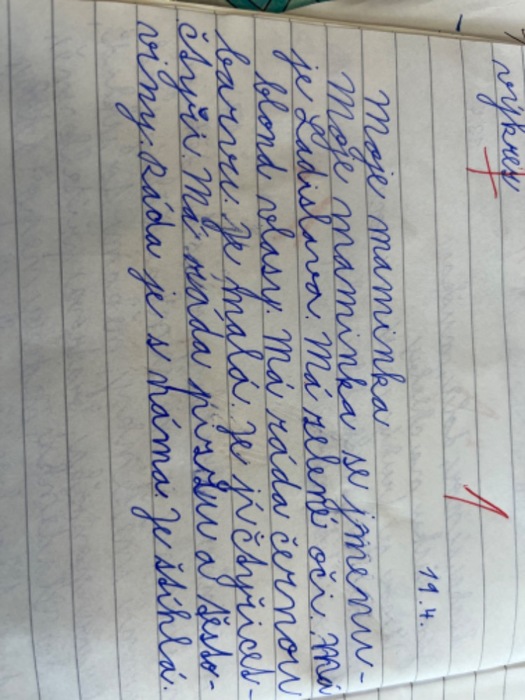 výkres
1
19.4.
Moje maminka
Moje maminka se jmenu-
je Ladislava. Má zelené oči. Má
blond vlasy. Má ráda černou
barvu. Je malá. Je jí čtyřicet-
čtyři. Má ráda pizzu a těsto-
viny. Ráda je s náma. Je štíhlá.